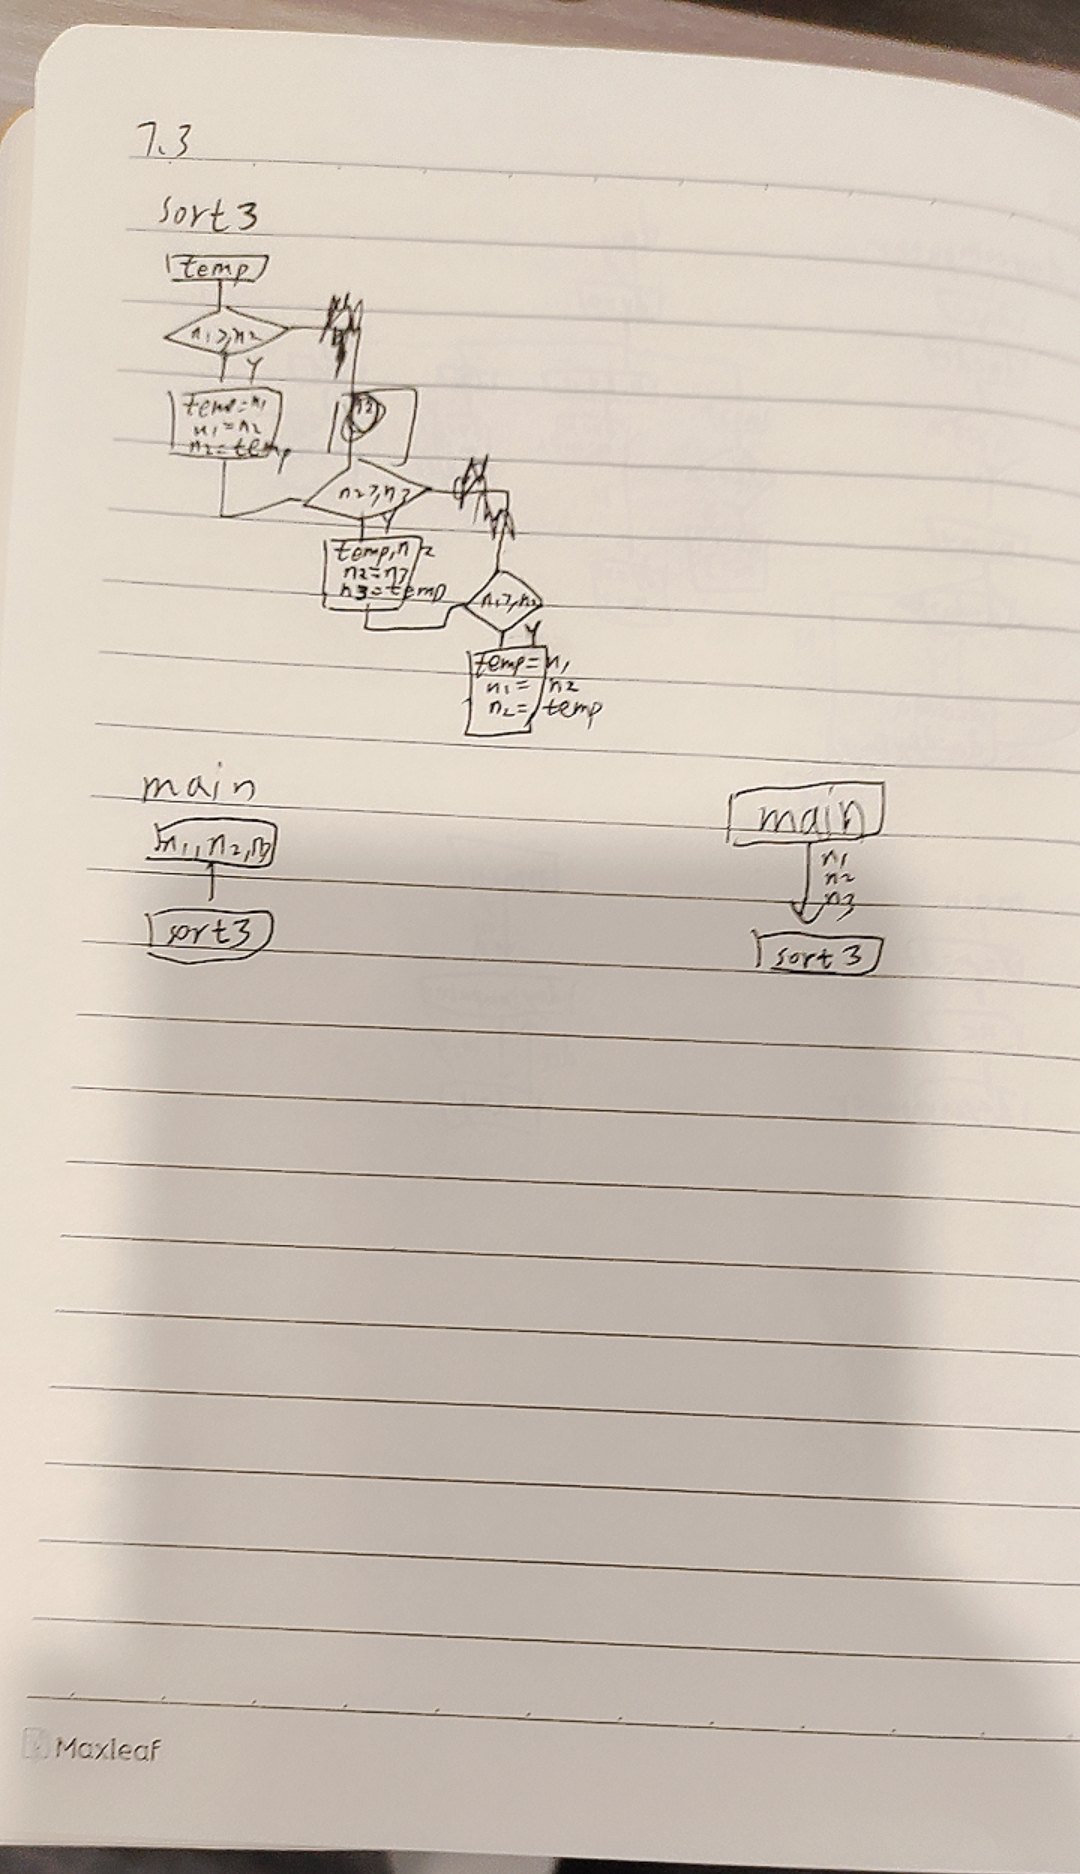 7.3
sort3
temp
n1>,n2
Y
temp=n1
n1=n2
n2=temp
n2
n2>,n3
Y
temp,n2
n2=n3
n3=temp
n1>,n2
Y
temp=n1
n1= n2
n2= temp
main
n1,n2,n3
sort3
main
n1
n2
n3
sort3
Maxleaf